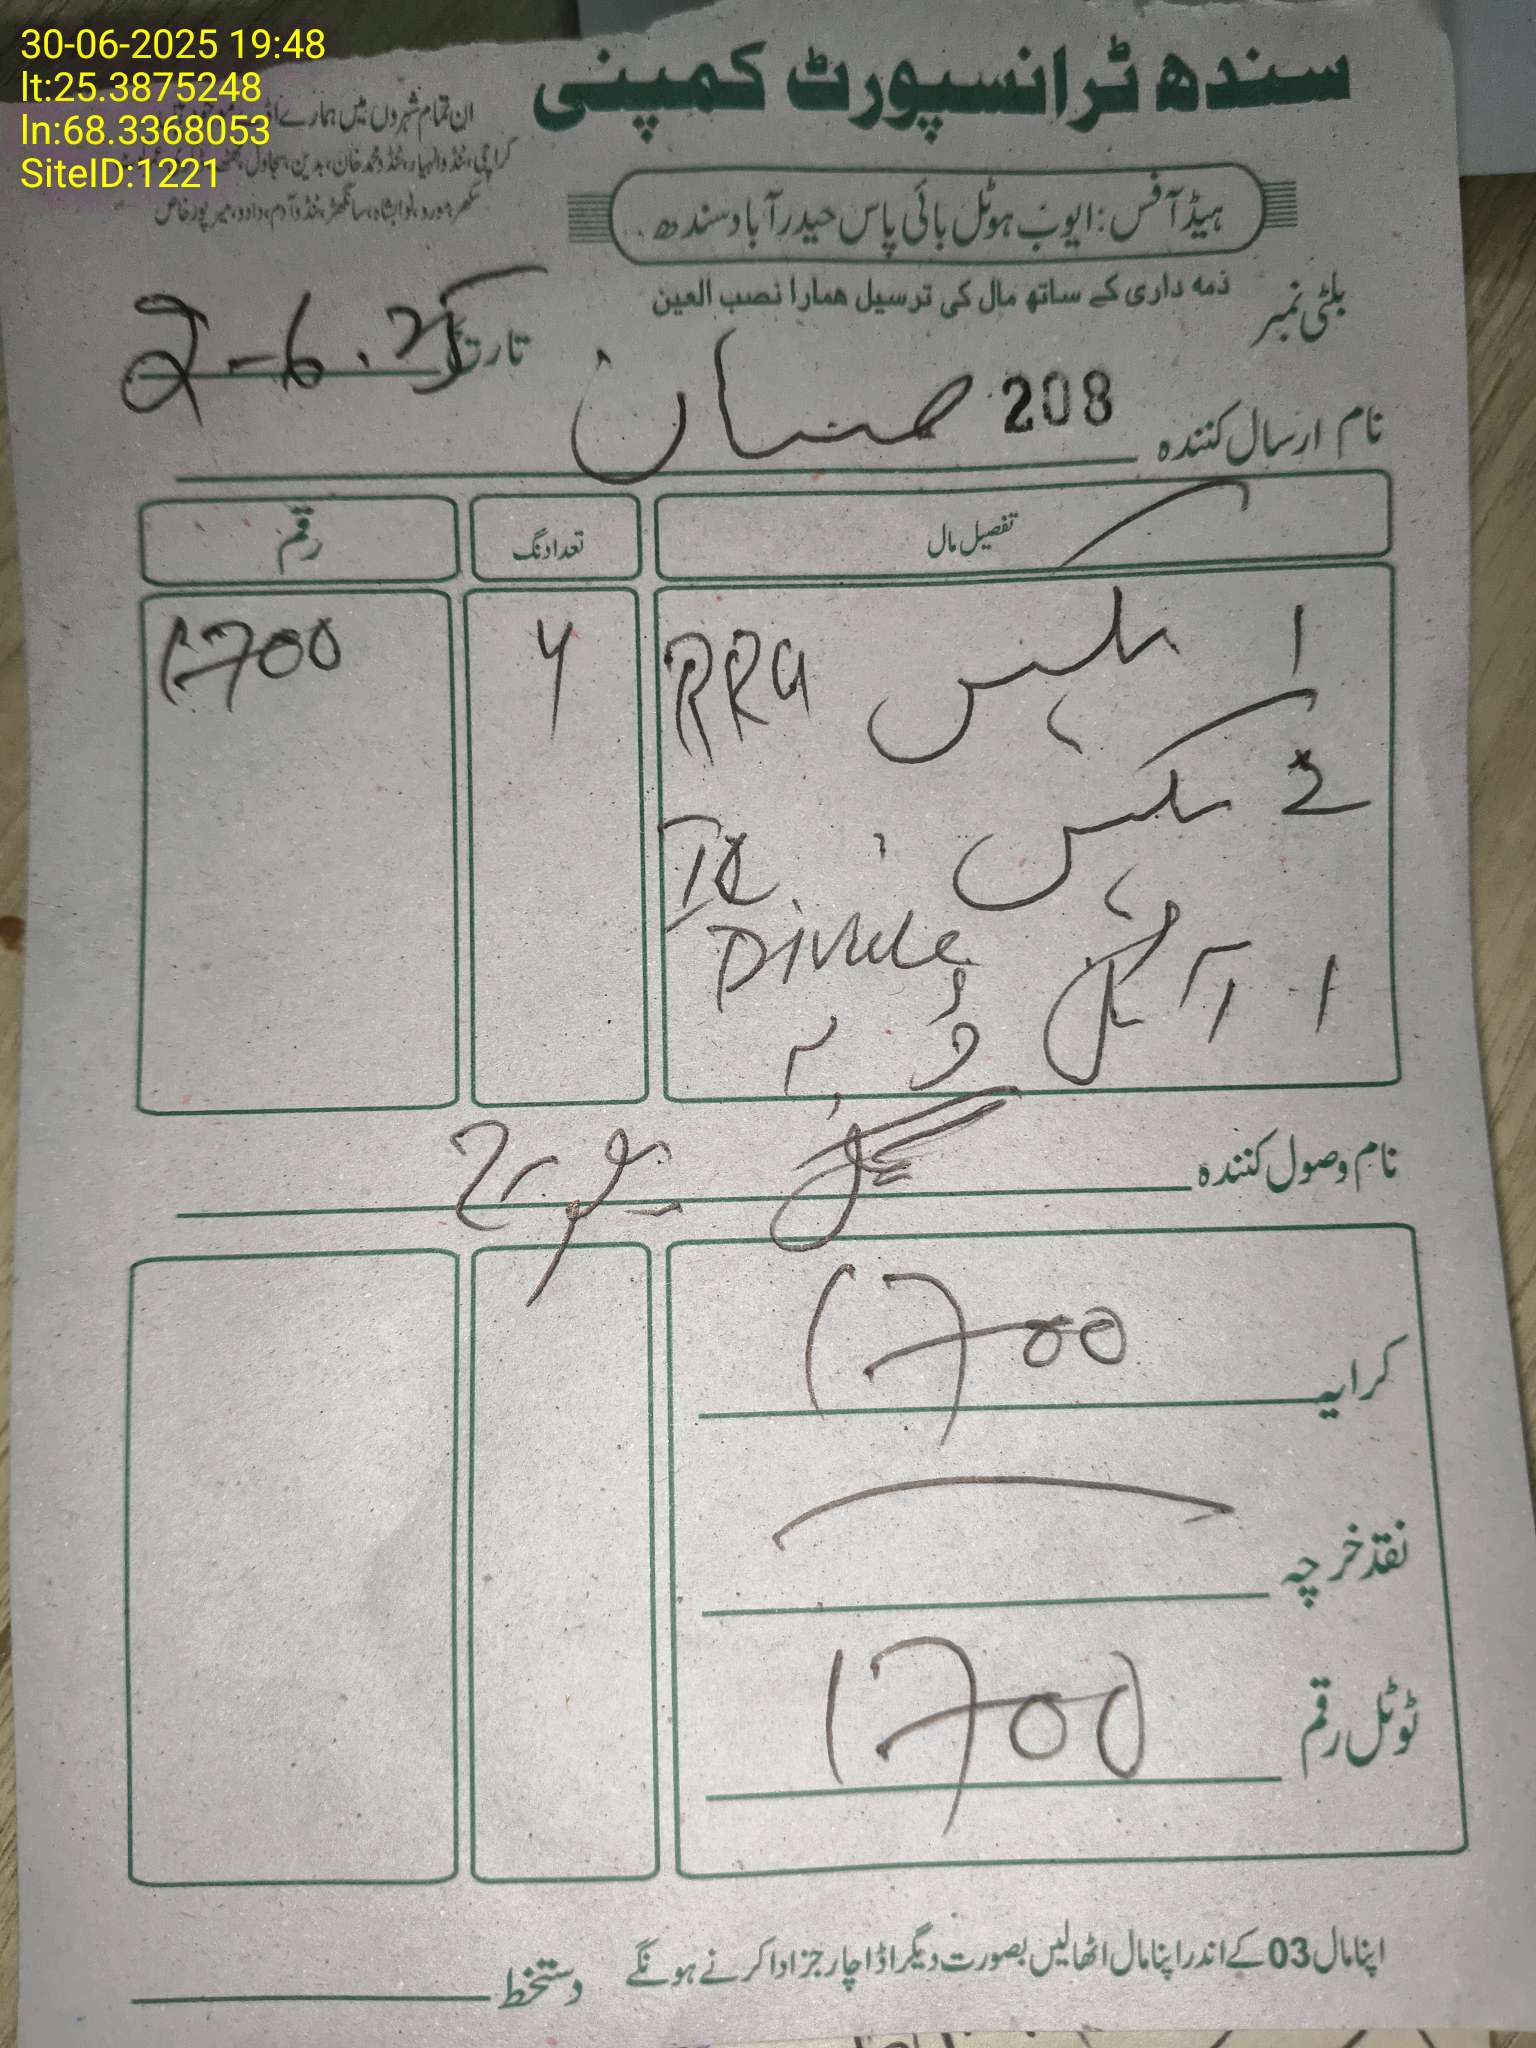 30-06-2025 19:48
lt:25.3875248
ln:68.3368053
SiteID:1221
سندھ ٹرانسپورٹ کمپنی
ان تمام شہروں میں ہمارے
کراچی، ٹنڈوالہیار، ٹنڈو محمد خان، بدین، سجاول
سکھر، مورو، نوابشاہ، سانگھڑ، ٹنڈو آدم، دادو، میر پور خاص
ہیڈ آفس: ایوب ہوٹل بائی پاس حیدر آباد سندھ
ذمہ داری کے ساتھ مال کی ترسیل ہمارا نصب العین
بلٹی نمبر 208
تاریخ 2-6.25
نام ارسال کنندہ
تفصیل مال تعداد نگ رقم
1 بکس RRG
1700
2 بکس
Divide
1 آئل
نام وصول کنندہ
کرایہ 1700
نقد خرچہ
ٹوٹل رقم 1700
اپنا مال 03 کے اندر اپنا مال اٹھالیں بصورت دیگر اڈا چارجز ادا کرنے ہونگے
دستخط